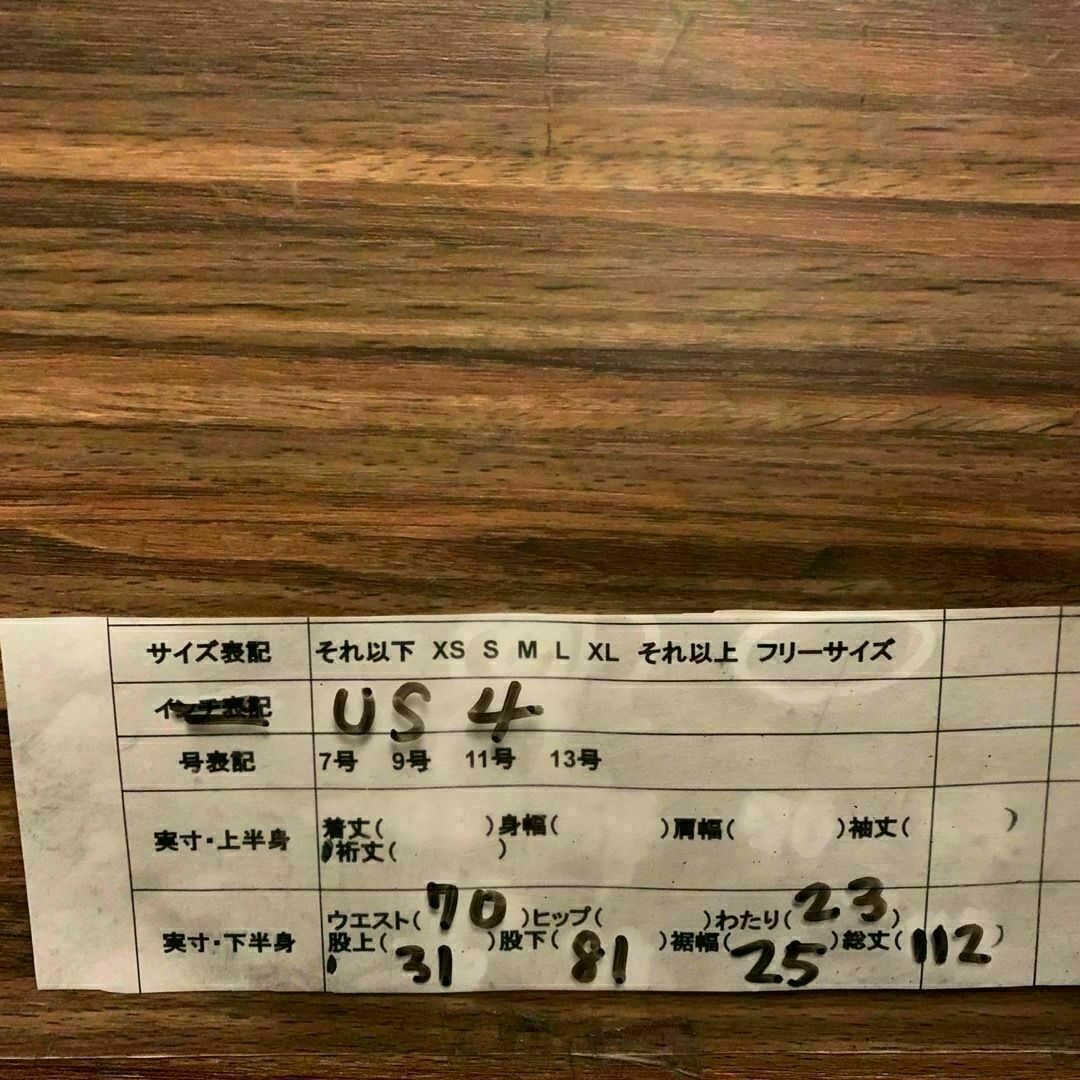 サイズ表記 それ以下 XS S M L XL それ以上 フリーサイズ
インチ表記 US 4
号表記 7号 9号 11号 13号
実寸・上半身 着丈( )身幅( )肩幅( )袖丈( )
裄丈( )
実寸・下半身 ウエスト(70)ヒップ( )わたり(23)
股上(31)股下(81)裾幅(25)総丈(112)